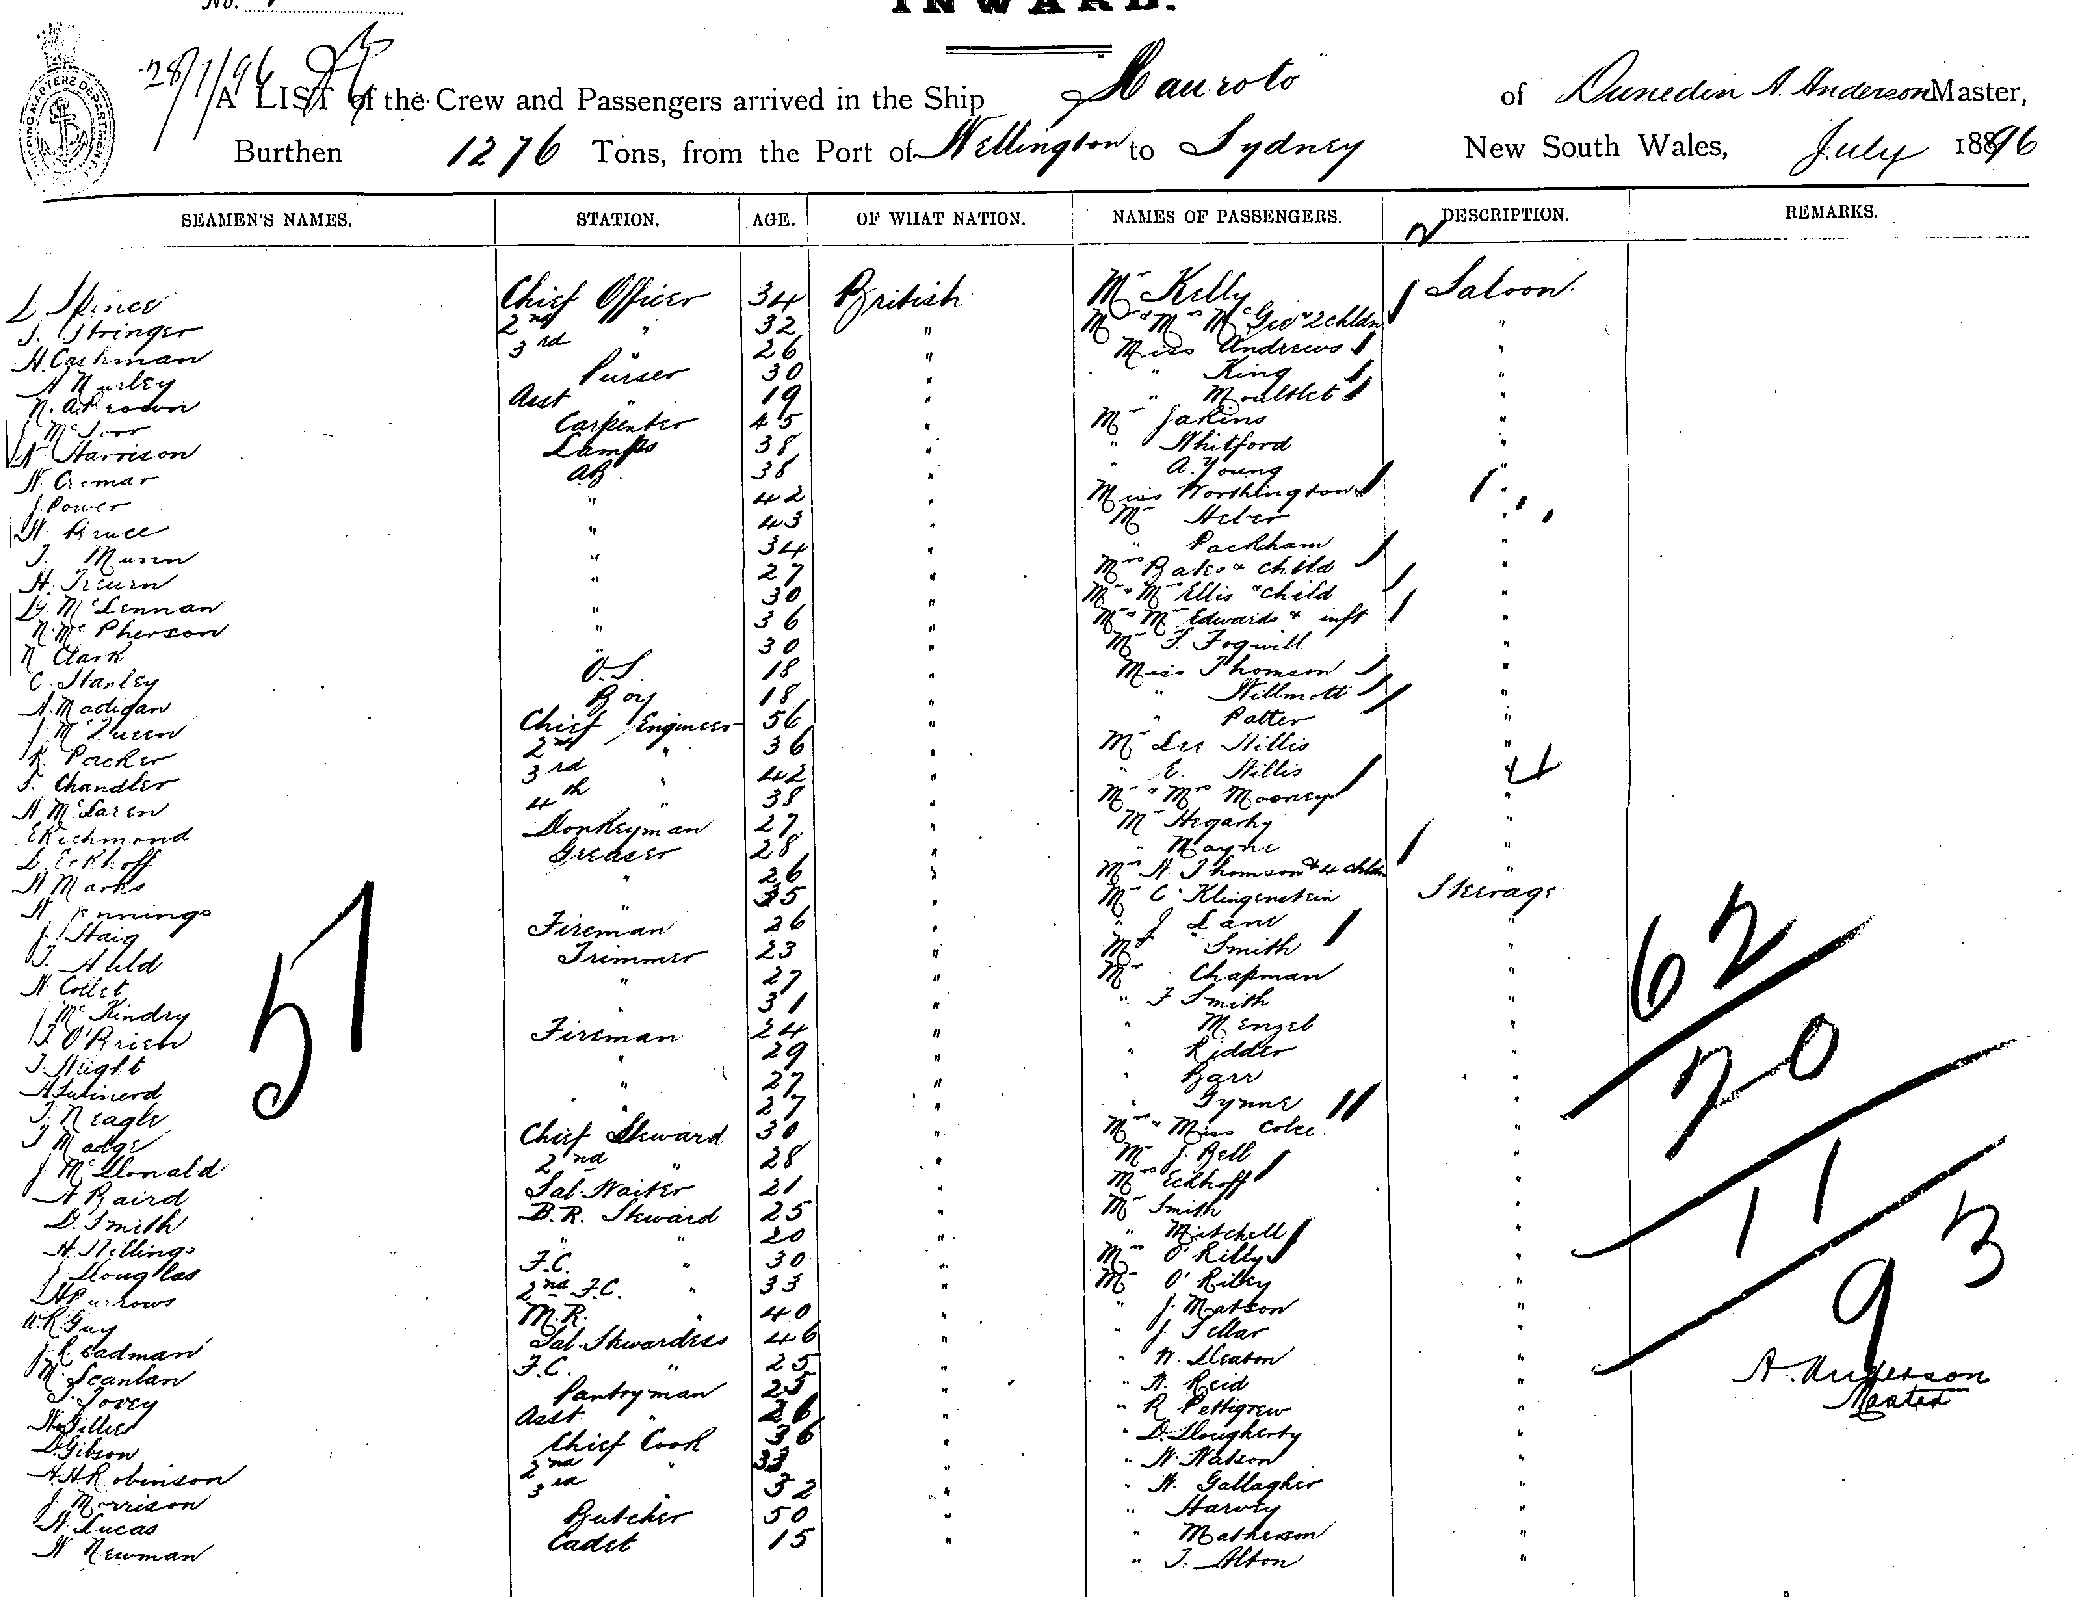 No.
INWARD.
28/1/96
A LIST of the Crew and Passengers arrived in the Ship Hauroto of Dunedin A. Anderson Master,
Burthen 1276 Tons, from the Port of Wellington to Sydney New South Wales, July 1896
SEAMEN'S NAMES. STATION. AGE. OF WHAT NATION. NAMES OF PASSENGERS. DESCRIPTION. REMARKS.
Spence Chief Officer 34 British Mr Kelly Saloon
J. Stringer 2nd " 32 " Mr & Mrs McGee & 2 chldn "
H. Cashman 3rd " 26 " Miss Andrews "
Purser 30 " " King "
N. A. Brown Asst " 19 " " "
Carpenter 45 " Mr Jakins "
W Harrison Lamps 38 " " Whitford "
W. Cromar AB 38 " " A. Young "
J. Power " 42 " Miss Worthington "
W. Bruce " 43 " Mr Heber "
J. Munn " 34 " " Packham "
H. " 27 " Mrs Bates & child "
McLennan " 30 " Mr & Mrs Ellis & child "
N. McPherson " 36 " Mr & Mrs Edwards & inft "
N Clark " 30 " Mr F. Fogwill "
C. Stanley O.S. 18 " Miss Thomson "
A. Madigan Boy 18 " " Willmott "
J. McQueen Chief Engineer 56 " " Patter "
R. Packer 2nd " 36 " Mr Lee Willis "
F. Chandler 3rd " 42 " " E. Willis "
A. McLaren 4th " 38 " Mr & Mrs Mooney "
E Richmond Donkeyman 27 " Mr Hegarty "
Eckhoff Greaser 28 " " Mayne "
W Marks " 26 " Mrs A. Thomson & 4 chldn "
W Jennings " 35 " Mr C Klingenstein Steerage
J. Haig Fireman 26 " " J Lane "
J. Auld Trimmer 23 " Mrs Smith "
W. Collet " 27 " Mr Chapman "
McKindry " 31 " " F Smith "
J. O'Brien Fireman 24 " " Menzel "
J. Wright " 29 " " Ridder "
A Swinerd " 27 " " Barr "
J. Neagle " 27 " " Gynne "
J Madge Chief Steward 30 " Mrs & Miss "
J McDonald 2nd " 28 " Mr J. Bell "
A Baird Sal. Waiter 21 " Mrs Eckhoff "
D. Smith B.R. Steward 25 " Mr Smith "
H. Nillings " " 20 " " Mitchell "
J Douglas F.C. " 30 " Mrs O'Rilly "
A Burrows 2nd F.C. " 33 " Mr O'Riley "
W. R Guy M.R. " 40 " " J. Matson "
J. Readman Sal. Stewardess 46 " " J. Sellar "
M. Scanlan F.C. " 25 " " W. Deaton "
J. Tovey Pantryman 25 " " A. Reid "
Gillies Asst " 26 " " R Pettigrew "
D Gibson Chief Cook 36 " " D. Dougherty "
A H Robinson 2nd " 33 " " W. Watson "
J. Morrison 3rd " 32 " " H. Gallagher "
W. Lucas Butcher 50 " " Harvey "
W Newman Cadet 15 " " Matherson "
" J. Alton "
57
62
20
11
93
A. Anderson
Master